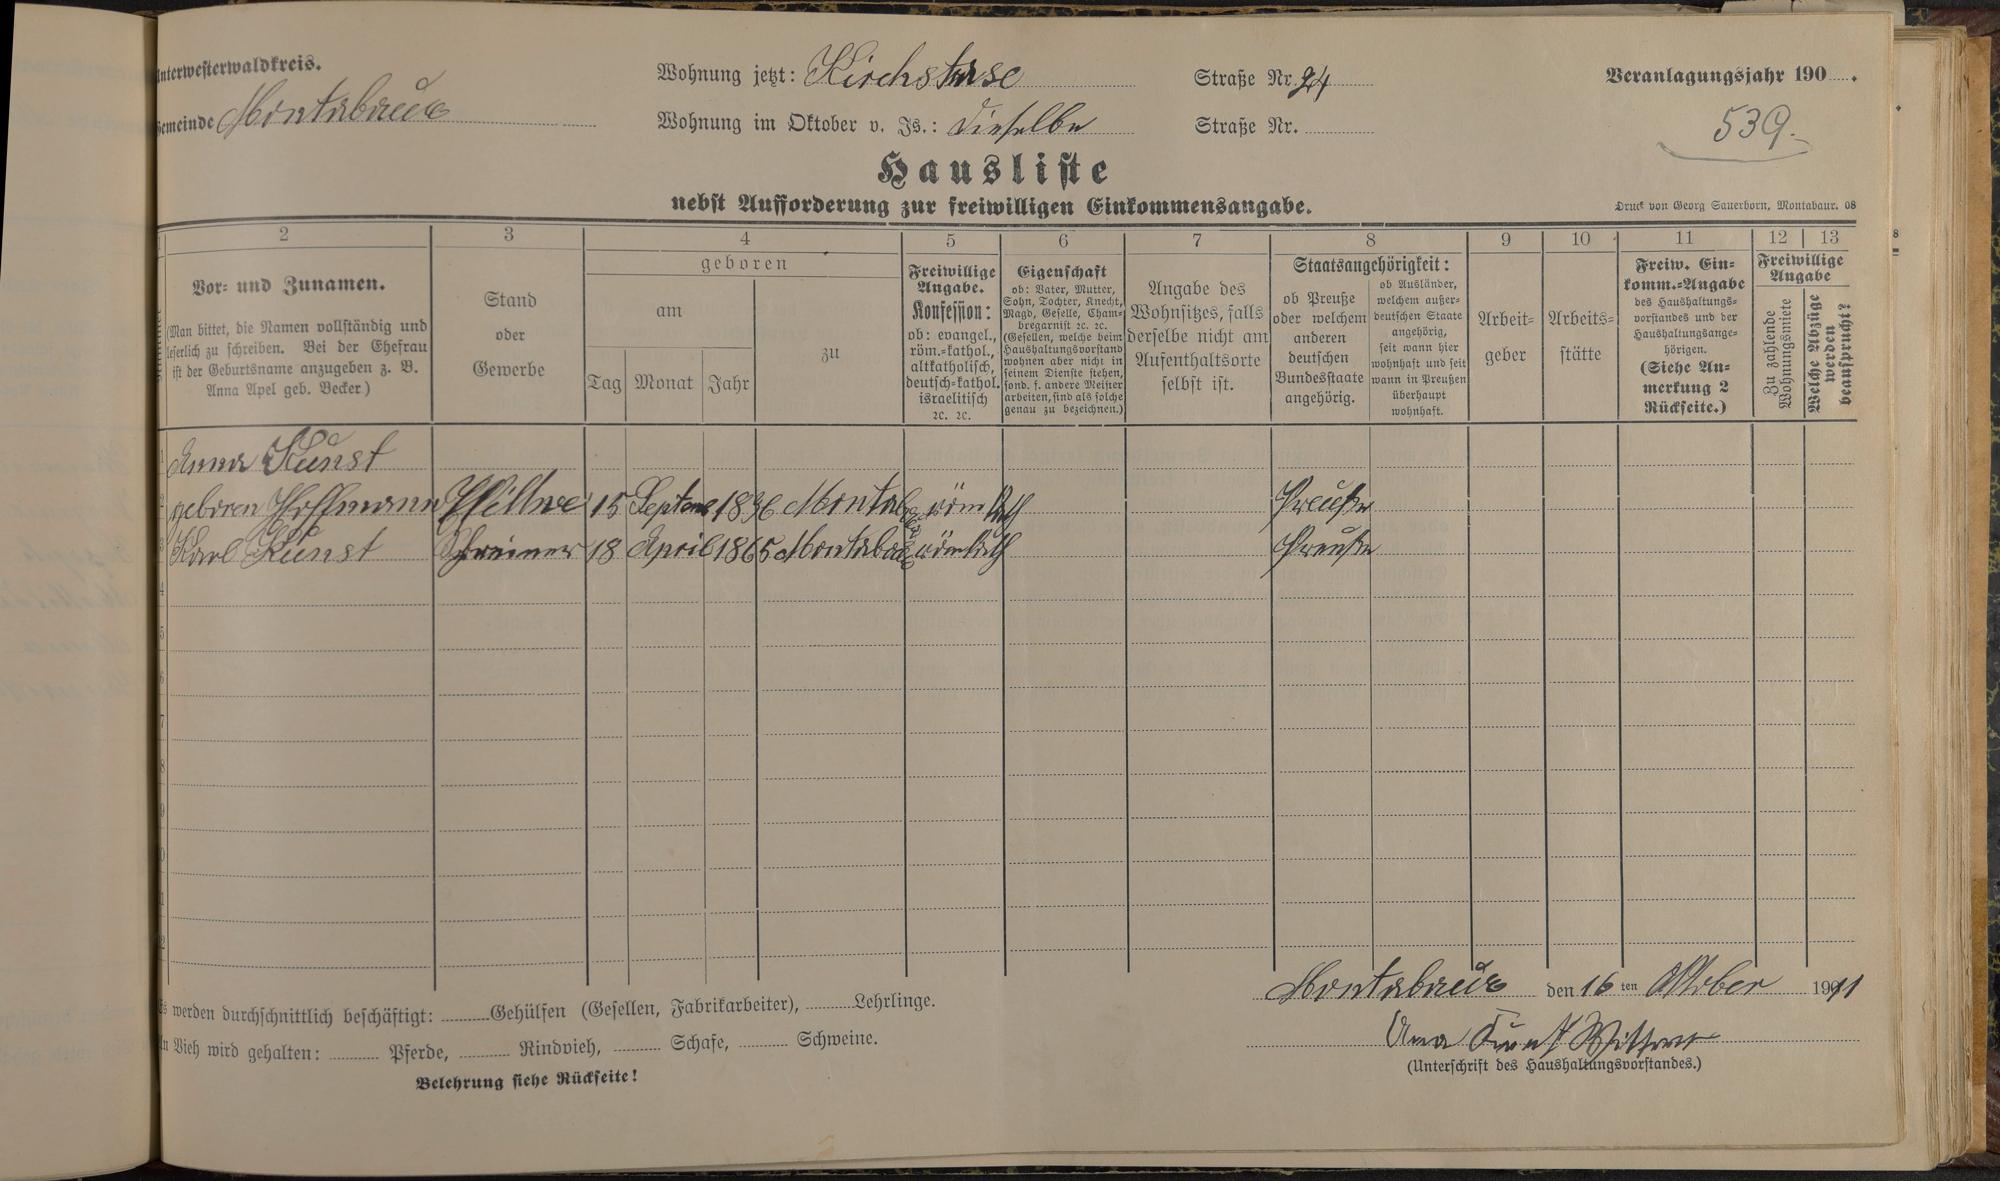 Unterwesterwaldkreis.
Gemeinde Montabaur
Wohnung jetzt: Kirchstrase Straße Nr. 24
Wohnung im Oktober v. Js.: Dieselbe Straße Nr.
Veranlagungsjahr 190 .
539.
Hausliste
nebst Aufforderung zur freiwilligen Einkommensangabe.
Druck von Georg Sauerborn, Montabaur. 08
2 3 4 5 6 7 8 9 10 11 12 13
Vor- und Zunamen.
(Man bittet, die Namen vollständig und
leserlich zu schreiben. Bei der Ehefrau
ist der Geburtsname anzugeben z. B.
Anna Apel geb. Becker.)
Stand
oder
Gewerbe
geboren
am
Tag Monat Jahr
zu
Freiwillige
Angabe.
Konfession:
ob: evangel.,
röm.-kathol.,
altkatholisch,
deutsch-kathol.
israelitisch
ꝛc. ꝛc.
Eigenschaft
ob: Vater, Mutter,
Sohn, Tochter, Knecht,
Magd, Geselle, Cham-
bregarnist ꝛc. ꝛc.
(Gesellen, welche beim
Haushaltungsvorstand
wohnen aber nicht in
seinem Dienste stehen,
sond. f. andere Meister
arbeiten, sind als solche
genau zu bezeichnen.)
Angabe des
Wohnsitzes, falls
derselbe nicht am
Aufenthaltsorte
selbst ist.
Staatsangehörigkeit:
ob Preuße
oder welchem
anderen
deutschen
Bundesstaate
angehörig.
ob Ausländer,
welchem außer-
deutschen Staate
angehörig,
seit wann hier
wohnhaft und seit
wann in Preußen
überhaupt
wohnhaft.
Arbeit-
geber
Arbeits-
stätte
Freiw. Ein-
komm.-Angabe
des Haushaltungs-
vorstandes und der
Haushaltungsange-
hörigen.
(Siehe An-
merkung 2
Rückseite.)
Freiwillige
Angabe
Zu zahlende
Wohnungsmiete
Welche Abzüge
werden
beansprucht?
1 Anna Kunst
2 geboren Hoffmann Wittwe 15 Septemb 1836 Montabaur röm kath Preuße
3 Karl Kunst Schreiner 18 April 1865 Montabaur röm kath Preuße
4
5
6
7
8
9
10
11
12
Es werden durchschnittlich beschäftigt: Gehülfen (Gesellen, Fabrikarbeiter), Lehrlinge.
An Vieh wird gehalten: Pferde, Rindvieh, Schafe, Schweine.
Belehrung siehe Rückseite!
Montabaur den 16 ten Oktober 1911
Ana Kunst Wittwe
(Unterschrift des Haushaltungsvorstandes.)